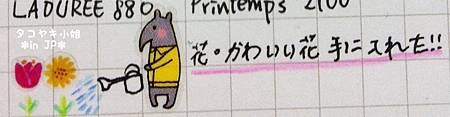 LADUREE 880 Printemps 2100
タコヤキ小姐
*in JP*
花・かわいい花 手に入れた!!